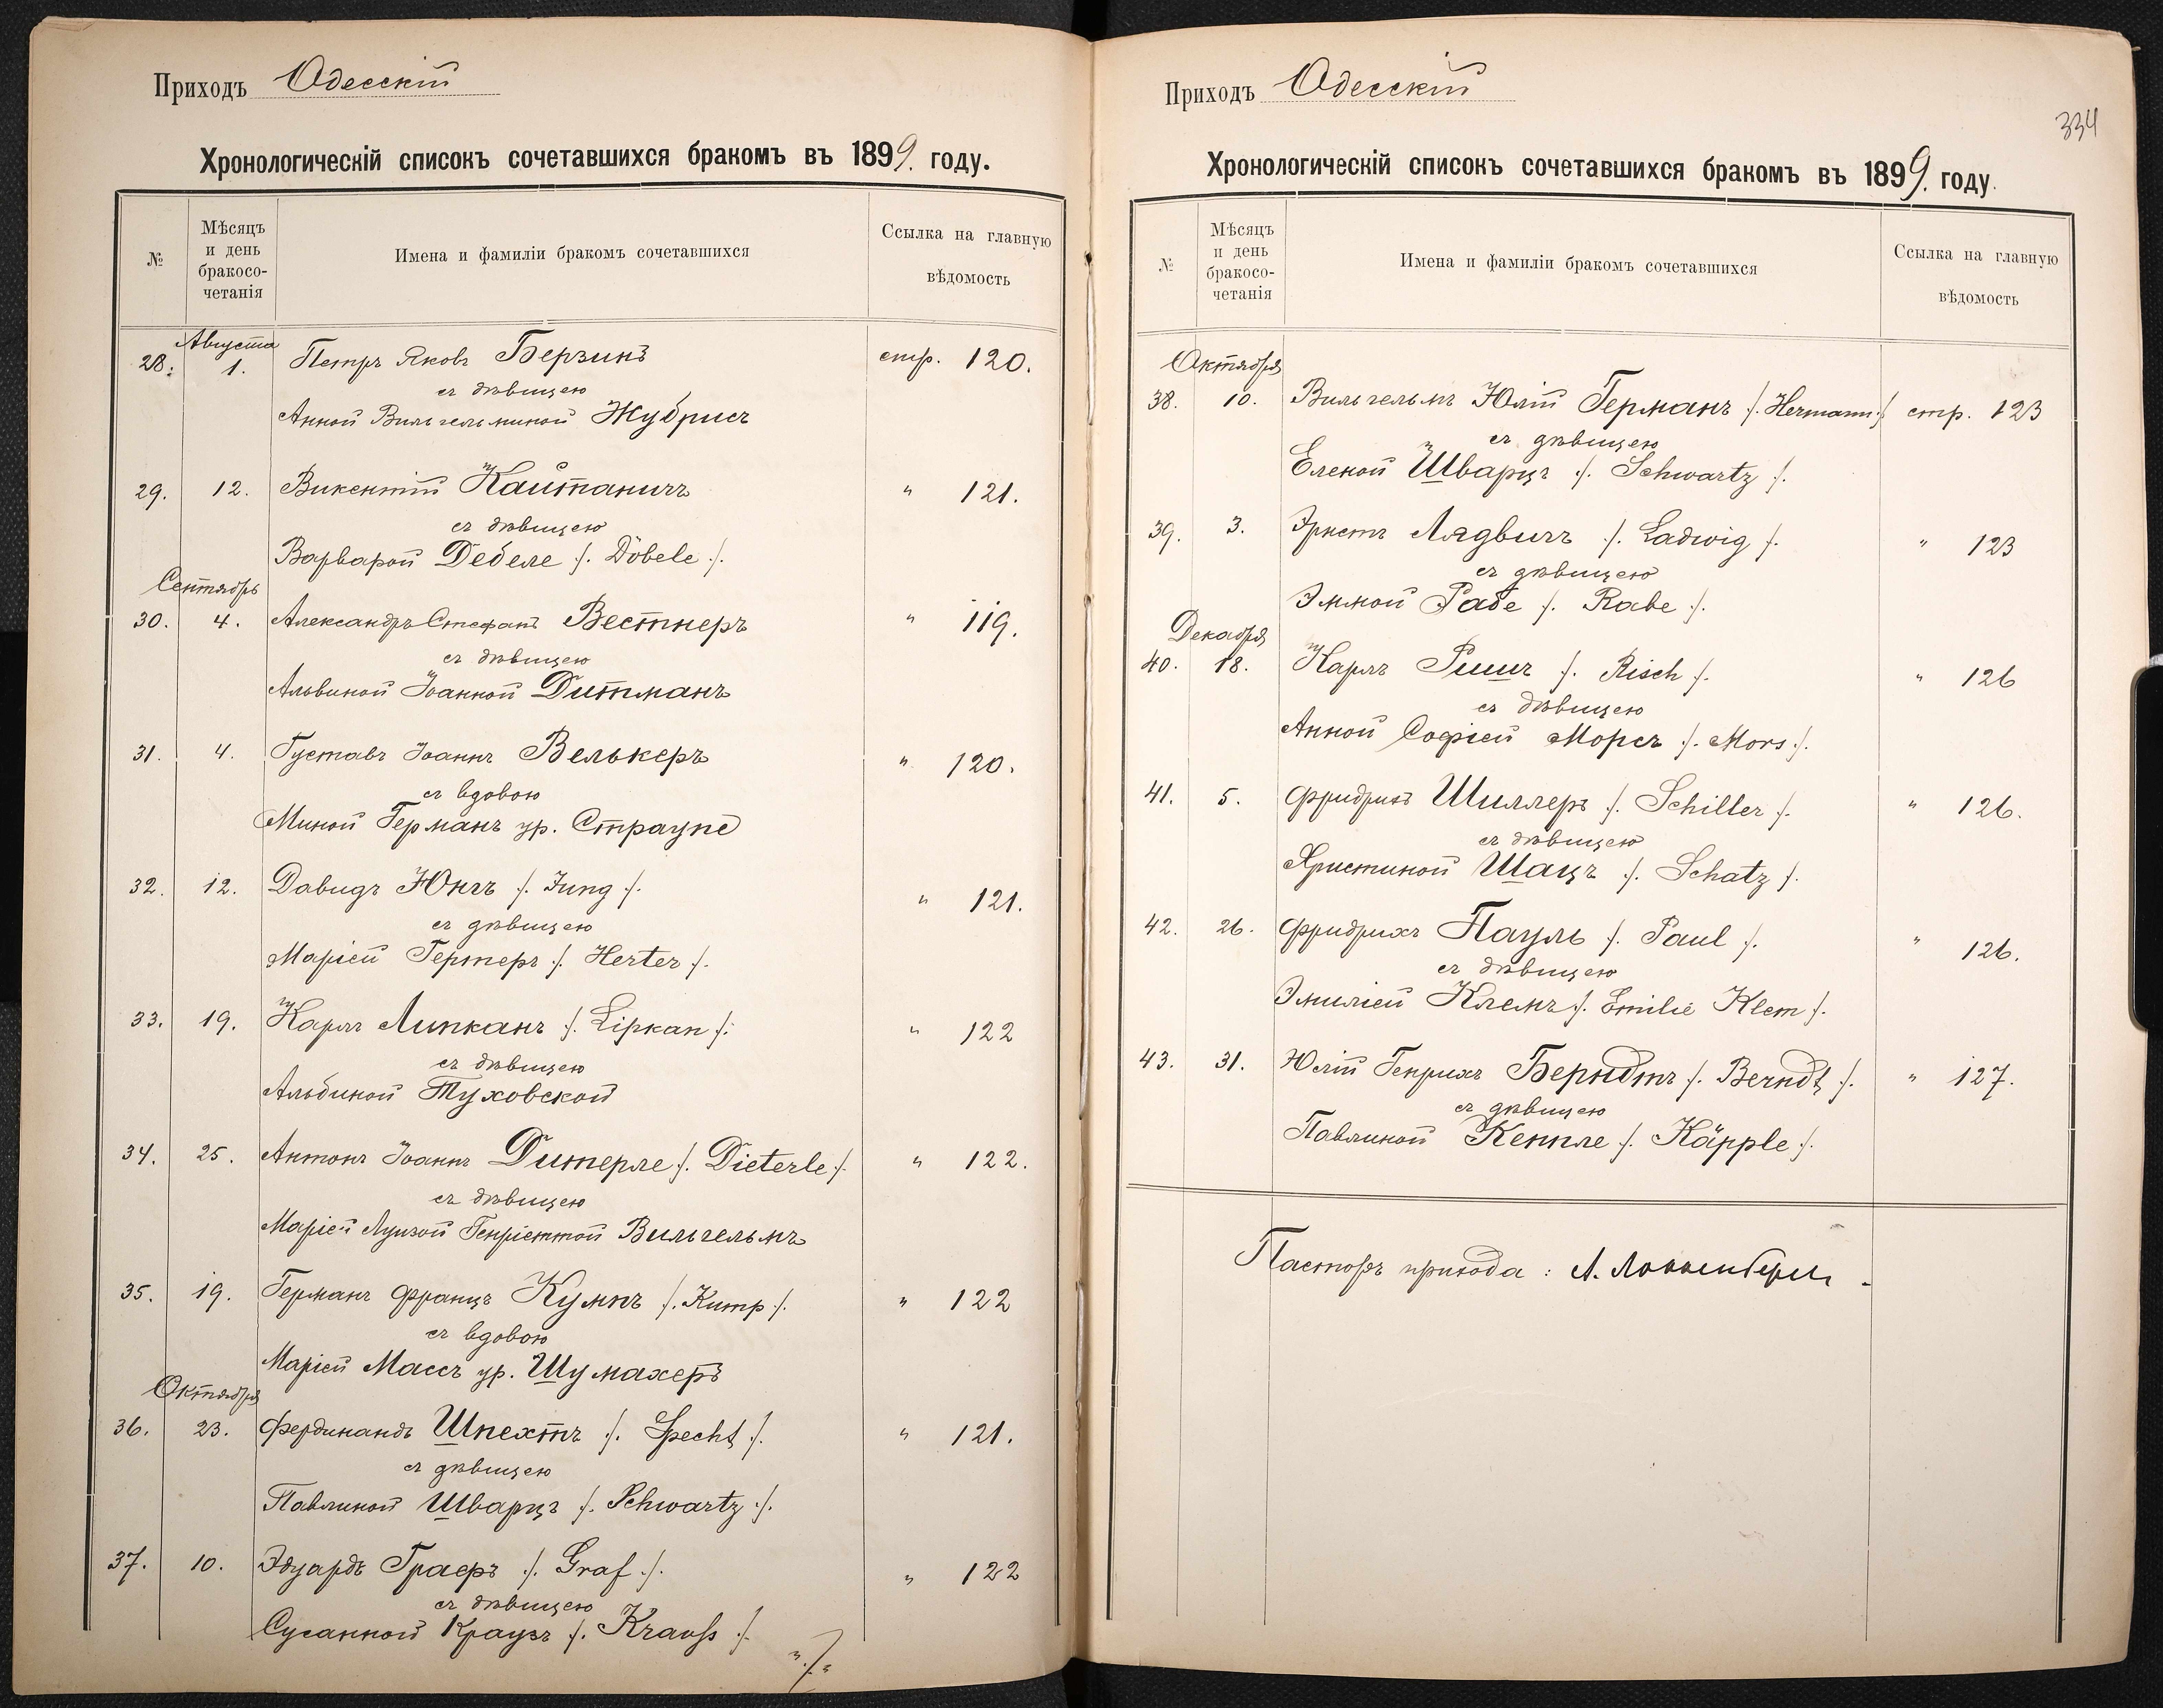 Приходъ Одесскій
Хронологическій списокъ сочетавшихся бракомъ въ 1899. году.
№
Мѣсяцъ
и день
бракосо-
четанія
Имена и фамиліи бракомъ сочетавшихся
Ссылка на главную
вѣдомость
Августа
28. 1. Петръ Яковъ Берзинъ стр. 120.
съ дѣвицею
Анной Вильгельминой Жубрисъ
29. 12. Викентій Кайтаничъ " 121.
съ дѣвицею
Варварой Дебеле /. Döbele /.
Сентябрь
30. 4. Александръ Стефанъ Вестнеръ " 119.
съ дѣвицею
Альвиной Іоанной Дитманъ
31. 4. Густавъ Іоаннъ Велькеръ " 120.
съ вдовою
Миной Германъ ур. Страупе
32. 12. Давидъ Юнгъ /. Jung /. " 121.
съ дѣвицею
Маріей Гертеръ /. Herter /.
33. 19. Карлъ Липканъ /. Lipkan /. " 122
съ дѣвицею
Альбиной Туховской
34. 25. Антонъ Іоаннъ Дитерле /. Dieterle /. " 122.
съ дѣвицею
Маріей Луизой Генріеттой Вильгельмъ
35. 19. Германъ Францъ Кумпъ /. Kump /. " 122
съ вдовою
Маріей Массъ ур. Шумахеръ
Октября
36. 23. Фердинандъ Шпехтъ /. Specht /. " 121.
съ дѣвицею
Павлиной Шварцъ /. Schwartz /.
37. 10. Эдуардъ Графъ /. Graf /. " 122
съ дѣвицею
Сусанной Краузъ /. Krauß /.
"/."
Приходъ Одесскій
334
Хронологическій списокъ сочетавшихся бракомъ въ 1899. году.
№
Мѣсяцъ
и день
бракосо-
четанія
Имена и фамиліи бракомъ сочетавшихся
Ссылка на главную
вѣдомость
Октября
38. 10. Вильгельмъ Юлій Германъ /. Hermann /. стр. 123
съ дѣвицею
Еленой Шварцъ /. Schwartz /.
39. 3. Эрнстъ Лядвигъ /. Ladwig /. " 123
съ дѣвицею
Эммой Рабе /. Rabe /.
Декабря
40. 18. Карлъ Ришъ /. Risch /. " 126
съ дѣвицею
Анной СофіейМорсъ /. Mors /.
41. 5. Фридрихъ Шиллеръ /. Schiller /. " 126.
съ дѣвицею
Христиной Шацъ /. Schatz /.
42. 26. Фридрихъ Пауль /. Paul /. " 126.
съ дѣвицею
Эмиліей Клемъ /. Emilie Klem /.
43. 31. Юлій Генрихъ Берндтъ /. Berndt /. " 127.
съ дѣвицею
Павлиной Кеппле /. Käpple /.
Пасторъ прихода: А.